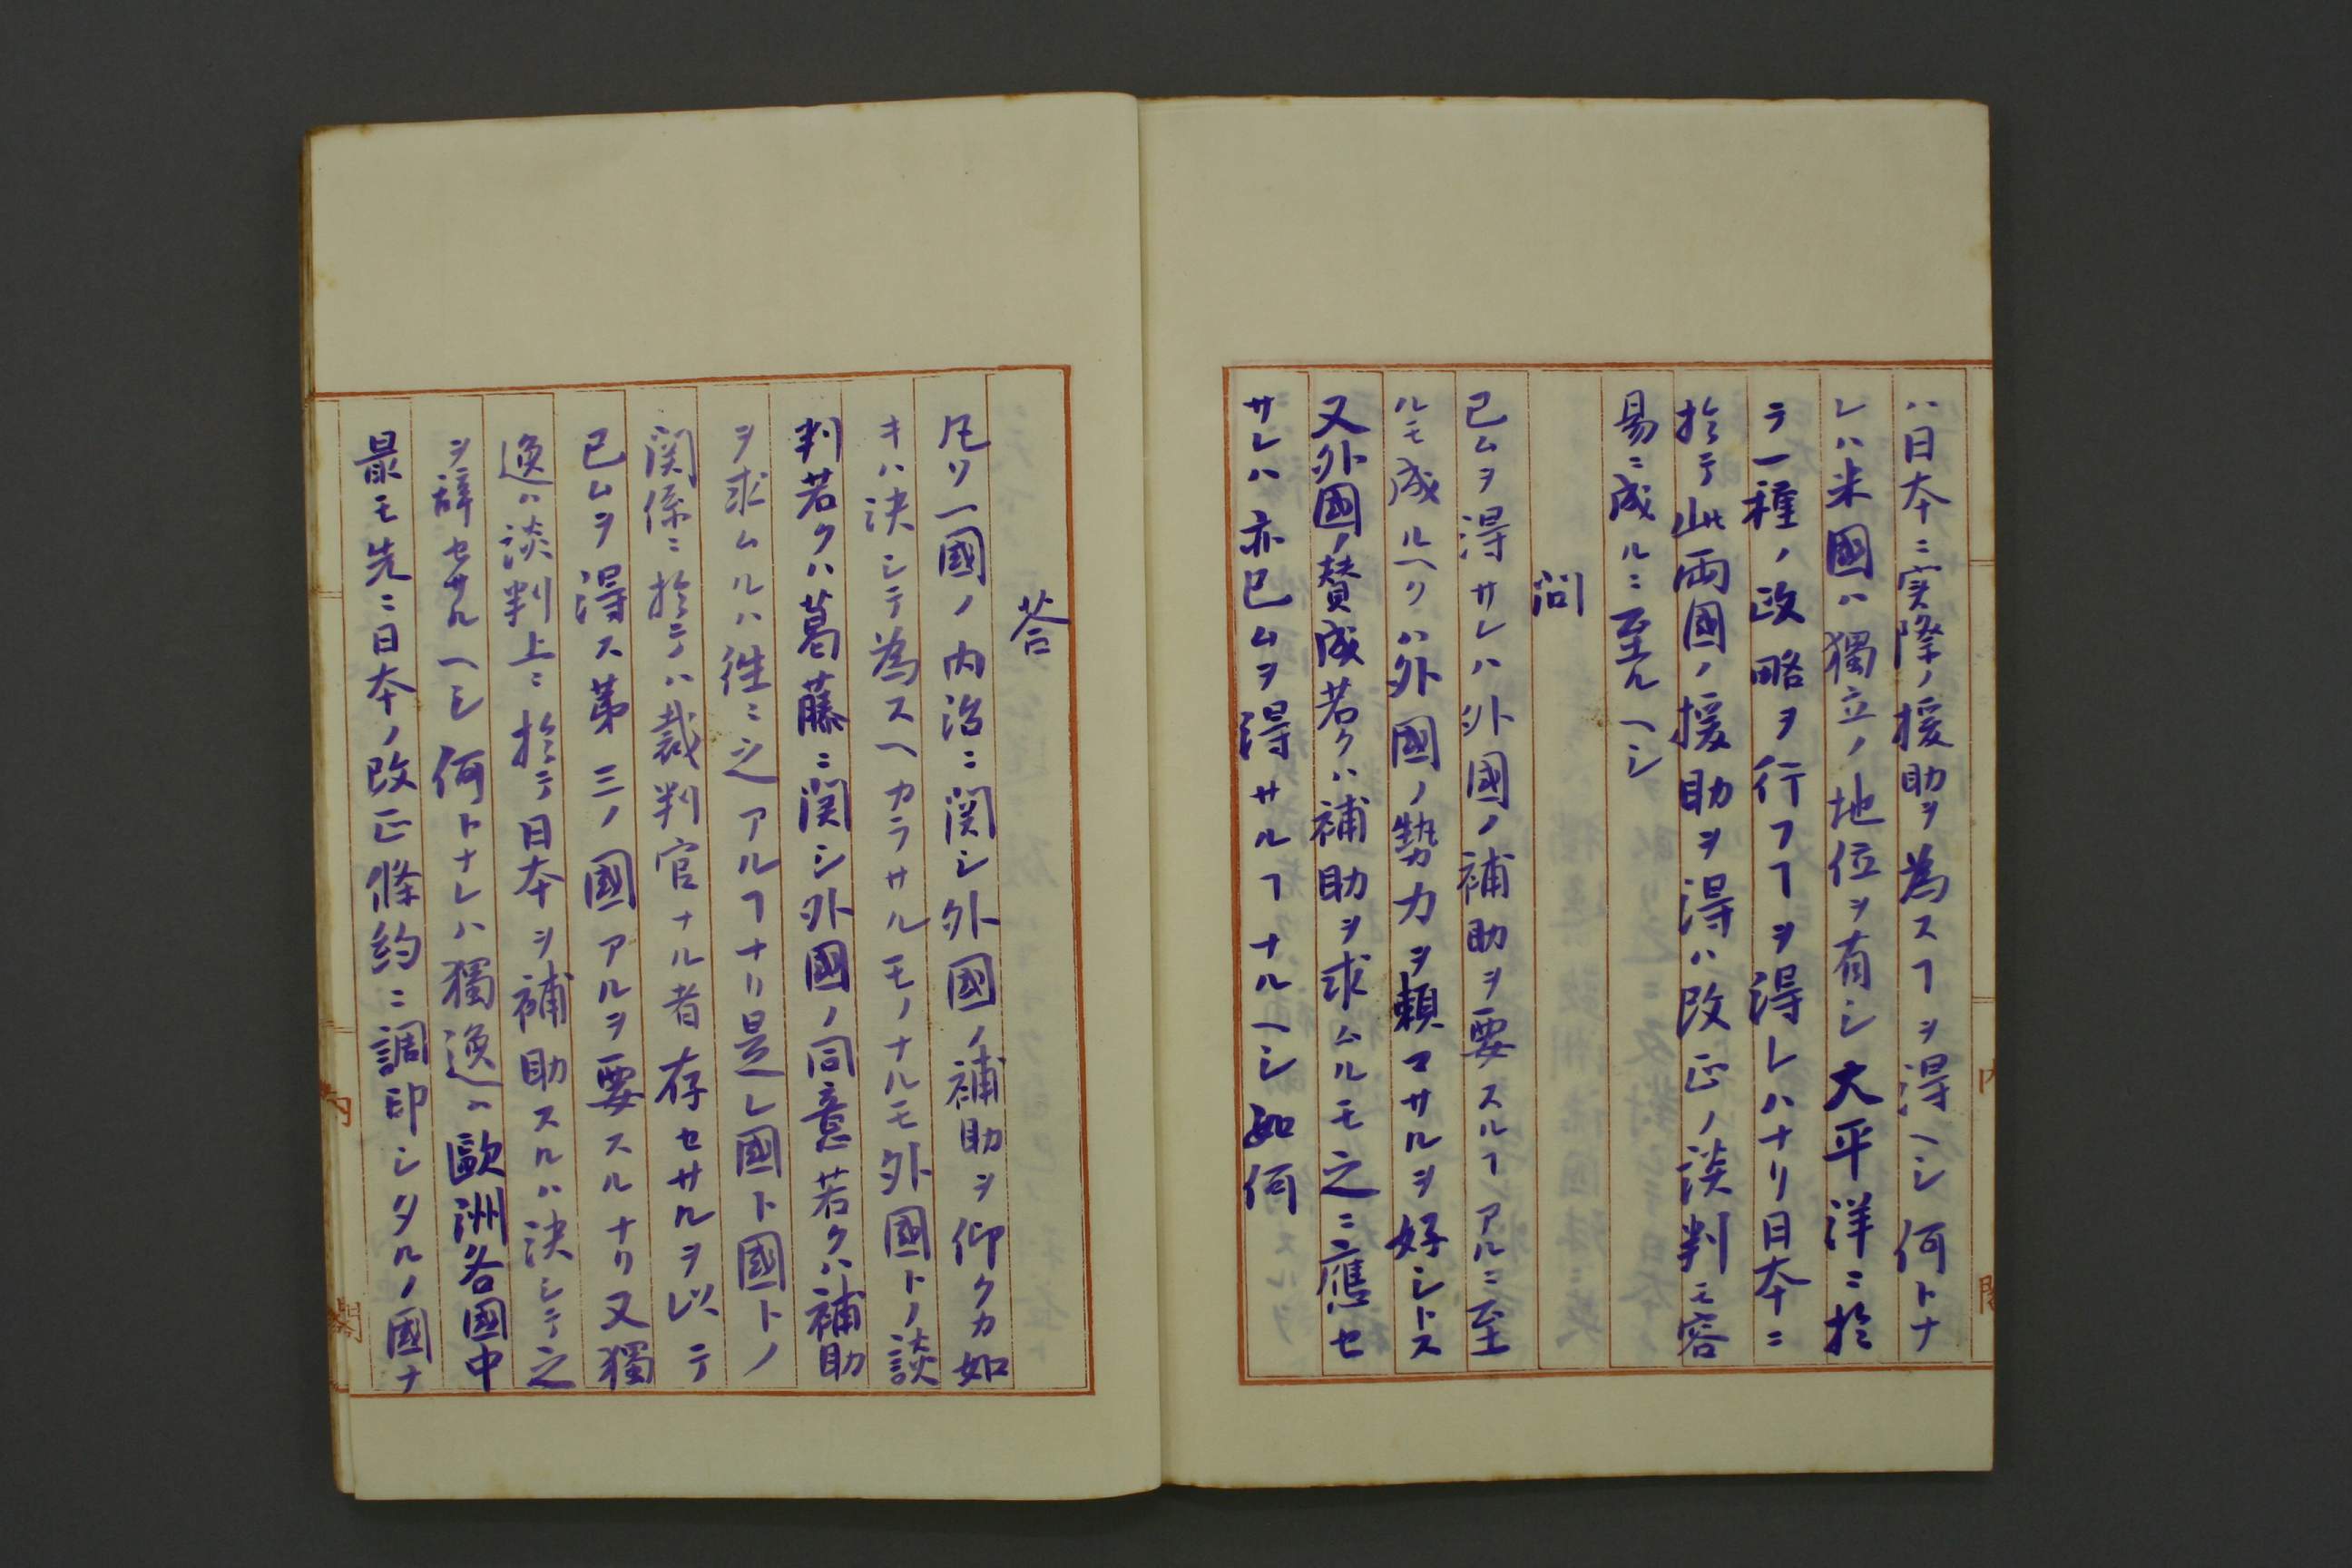 ハ日本ニ実際ノ援助ヲ為スヿヲ得ヘシ何トナ
レハ米國ハ獨立ノ地位ヲ有シ大平洋ニ於
テ一種ノ政略ヲ行フヿヲ得レハナリ日本ニ
於テ此両國ノ援助ヲ得ハ改正ノ談判モ容
易ニ成ルニ至ルヘシ
问
已ムヲ得サレハ外國ノ補助ヲ要スルヿアルニ至
ルモ成ルヘクハ外國ノ勢力ヲ頼マサルヲ好シトス
又外國ノ賛成若クハ補助ヲ求ムルモ之ニ應セ
サレハ亦已ムヲ得サルヿナルヘシ如何
荅
凡ソ一國ノ内治ニ関シ外國ノ補助ヲ仰クカ如
キハ决シテ為スヘカラサルモノナルモ外國トノ談
判若クハ葛藤ニ関シ外國ノ同意若クハ補助
ヲ求ムルハ徃〻之アルヿナリ是レ國ト國トノ
関係ニ於テハ裁判官ナル者存セサルヲ以テ
已ムヲ得ス第三ノ國アルヲ要スルナリ又獨
逸ハ談判上ニ於テ日本ヲ補助スルハ决シテ之
ヲ辞セサルヘシ何トナレハ獨逸ハ歐洲各國中
最モ先ニ日本ノ改正條約ニ調印シタルノ國ナ
内
閣